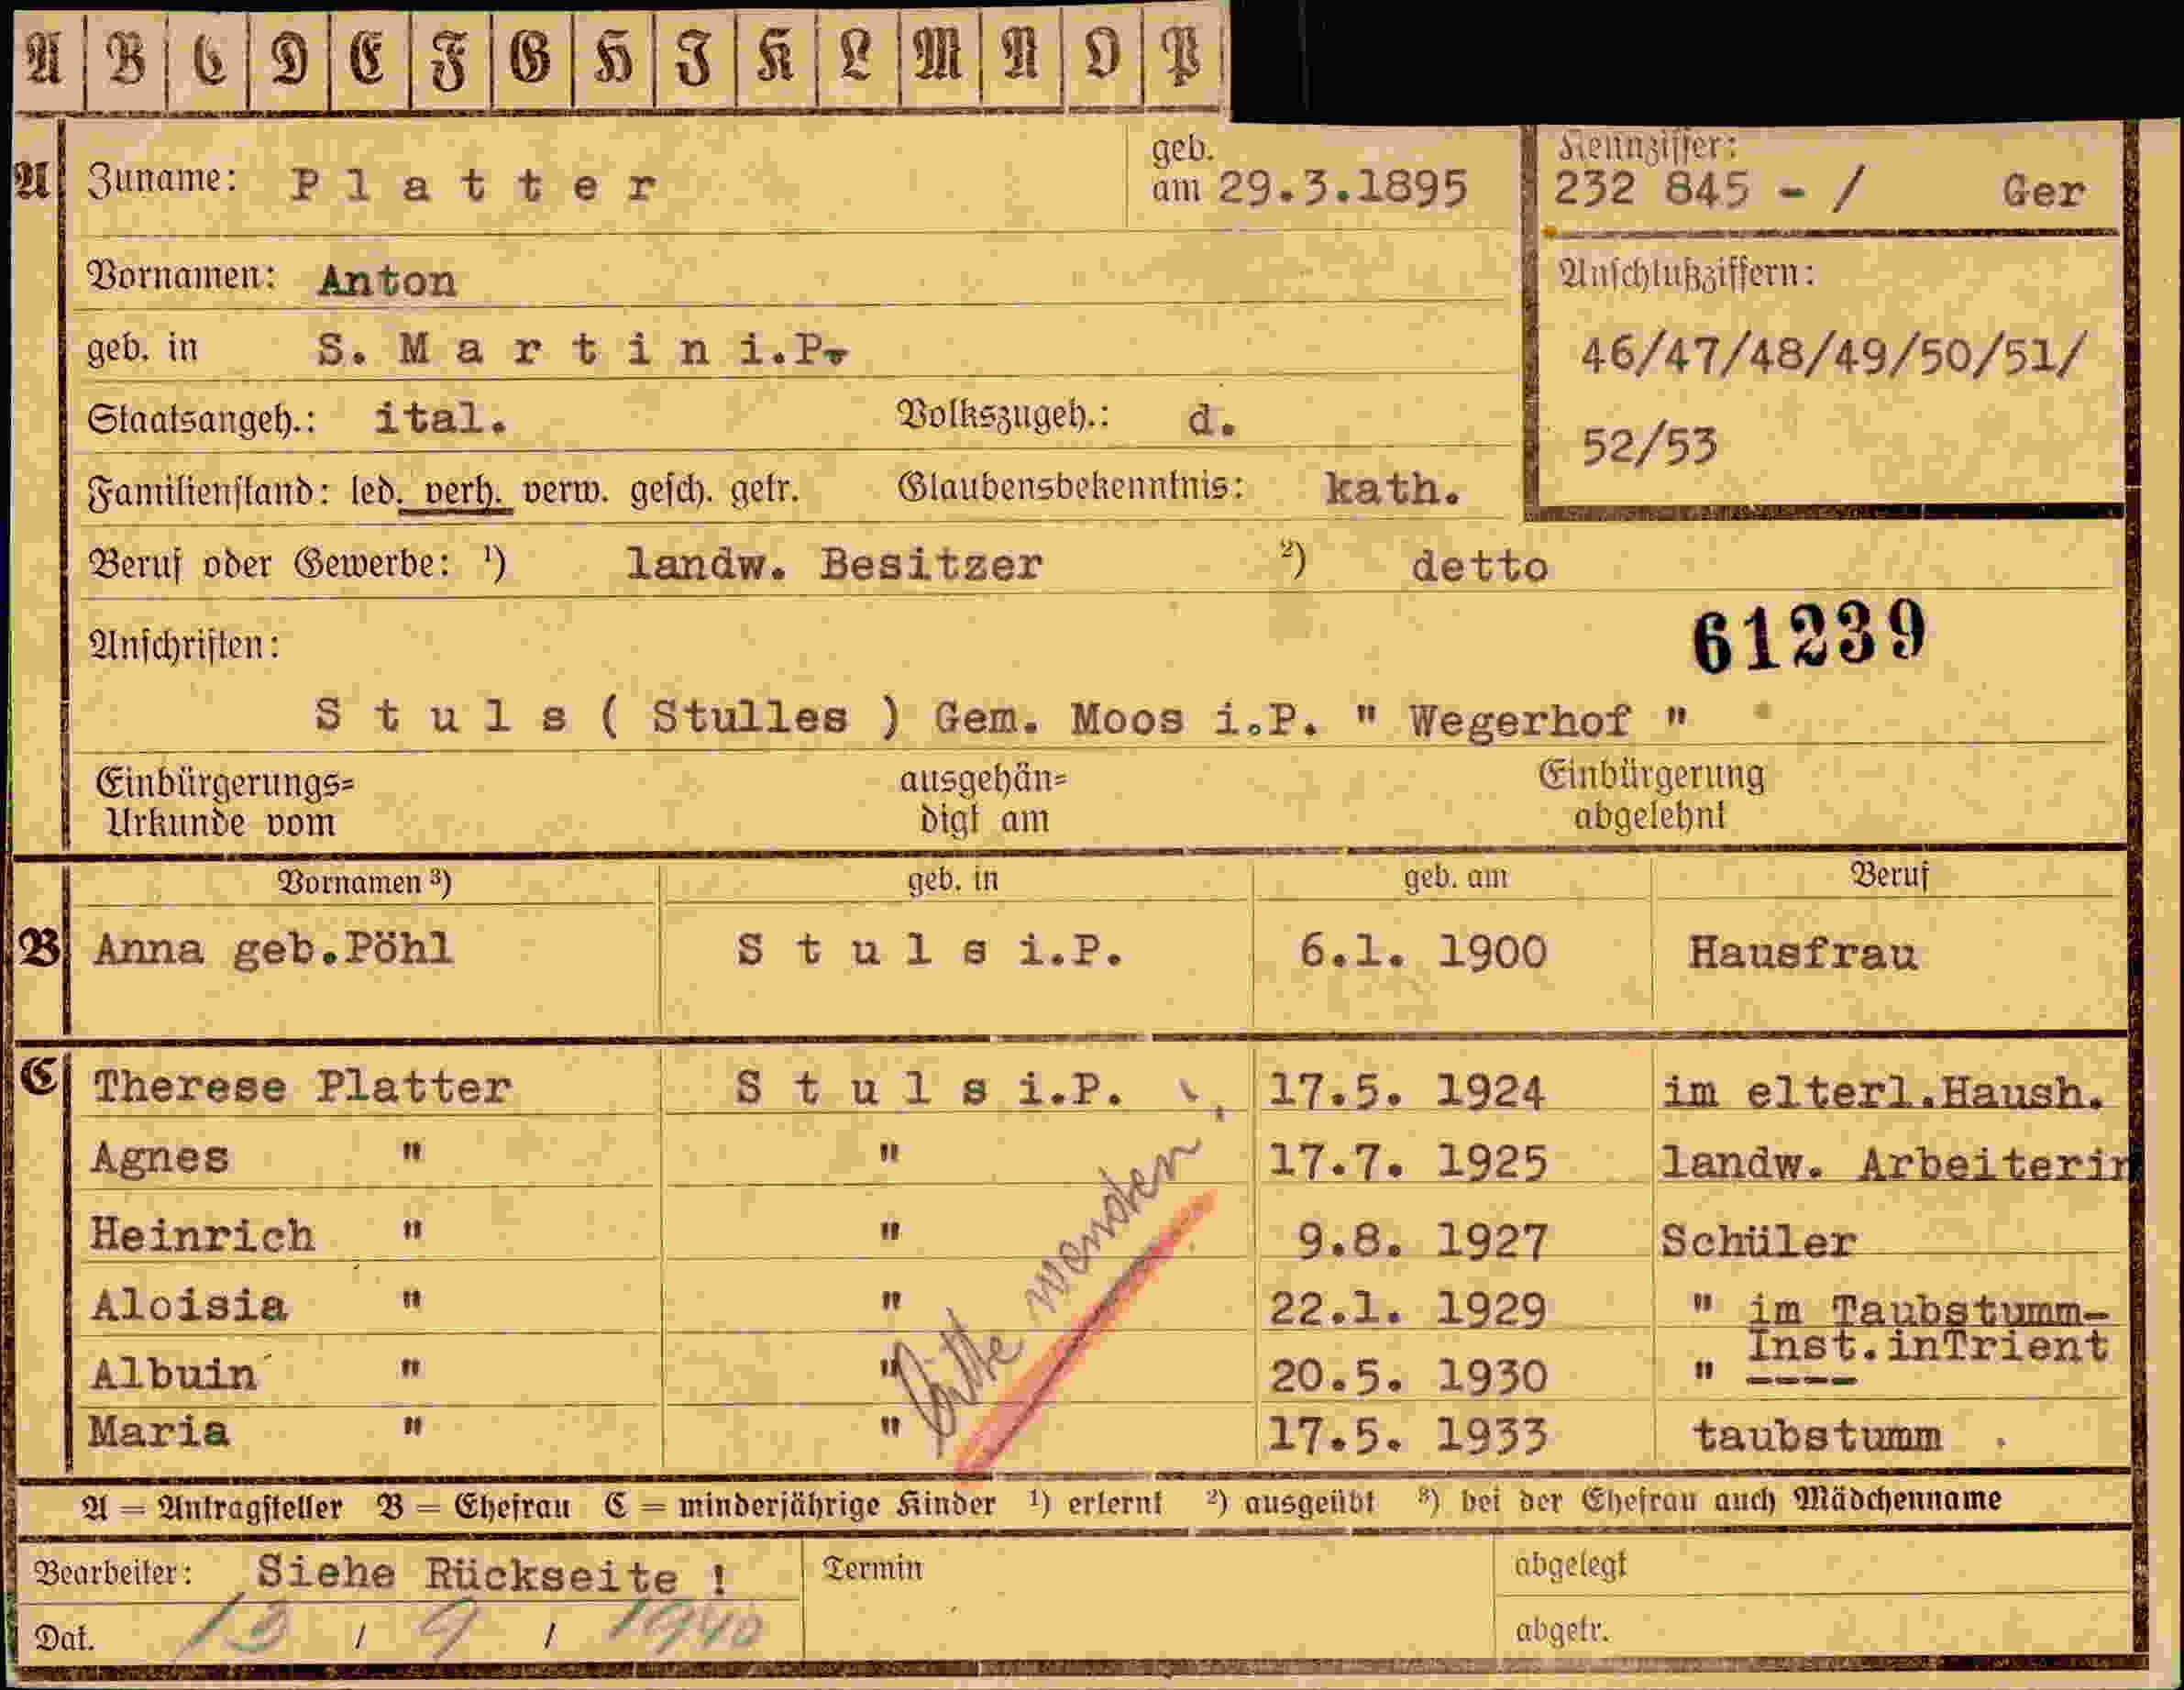 A B C D E F G H I K L M N O P
A Zuname: Platter geb. am 29.3.1895
Kennziffer:
232 845 - / Ger
Vornamen: Anton
Anschlußziffern:
46/47/48/49/50/51/
52/53
geb. in S. Martin i.P.
Staatsangeh.: ital. Volkszugeh.: d.
Familienstand: led. verh. verw. gesch. getr. Glaubensbekenntnis: kath.
Beruf oder Gewerbe: ¹) landw. Besitzer ²) detto
Anschriften: 61239
Stuls ( Stulles ) Gem. Moos i.P. " Wegerhof "
Einbürgerungs= ausgehän= Einbürgerung
Urkunde vom digt am abgelehnt
Vornamen ³) geb. in geb. am Beruf
B Anna geb.Pöhl Stuls i.P. 6.1. 1900 Hausfrau
C Therese Platter Stuls i.P. 17.5. 1924 im elterl.Haush.
Agnes " " 17.7. 1925 landw. Arbeiterin
Heinrich " " 9.8. 1927 Schüler
Aloisia " " 22.1. 1929 " im Taubstumm-
Inst.inTrient
Albuin " " 20.5. 1930 " ----
Maria " " 17.5. 1933 taubstumm
Bitte wenden!
A = Antragsteller B = Ehefrau C = minderjährige Kinder ¹) erlernt ²) ausgeübt ³) bei der Ehefrau auch Mädchenname
Bearbeiter: Siehe Rückseite ! Termin abgelegt
Dat. 13 / 9 / 1940 abgetr.